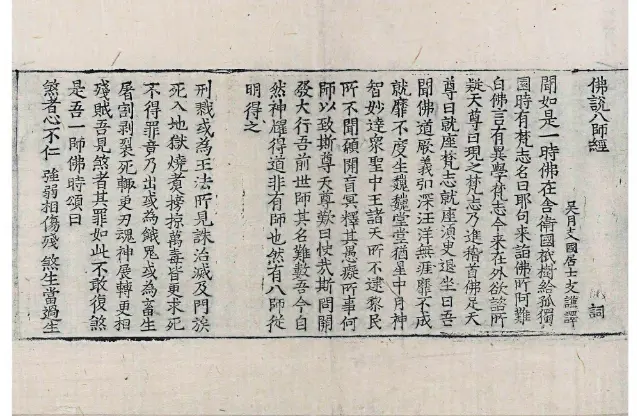 佛說八師經 詞
吳月支國居士支謙譯
聞如是一時佛在舍衛國祇樹給孤獨
園時有梵志名曰耶句来詣佛所阿難
白佛言有異學梵志今来在外欲諮所
疑天尊曰現之梵志乃進稽首佛足天
尊曰就座梵志就座須臾退坐曰吾
聞佛道厥義弘深汪洋無涯靡不成
就靡不度生巍巍堂堂猶星中月神
智妙達衆聖中王諸天所不逮黎民
所不聞願開盲冥釋其愚癡所事何
師以致斯尊天尊歎曰快哉斯問開
發大行吾前世師其名難數吾今自
然神耀得道非有師也然有八師從
明得之
刑戮或為王法所見誅治滅及門族
死入地獄燒煑搒掠萬毒皆更求死
不得罪竟乃出或為餓鬼或為畜生
屠割剥裂死輒更刃魂神展轉更相
殘賊吾見煞者其罪如此不敢復煞
是吾一師佛時頌曰
煞者心不仁 強弱相傷殘 煞生當過生